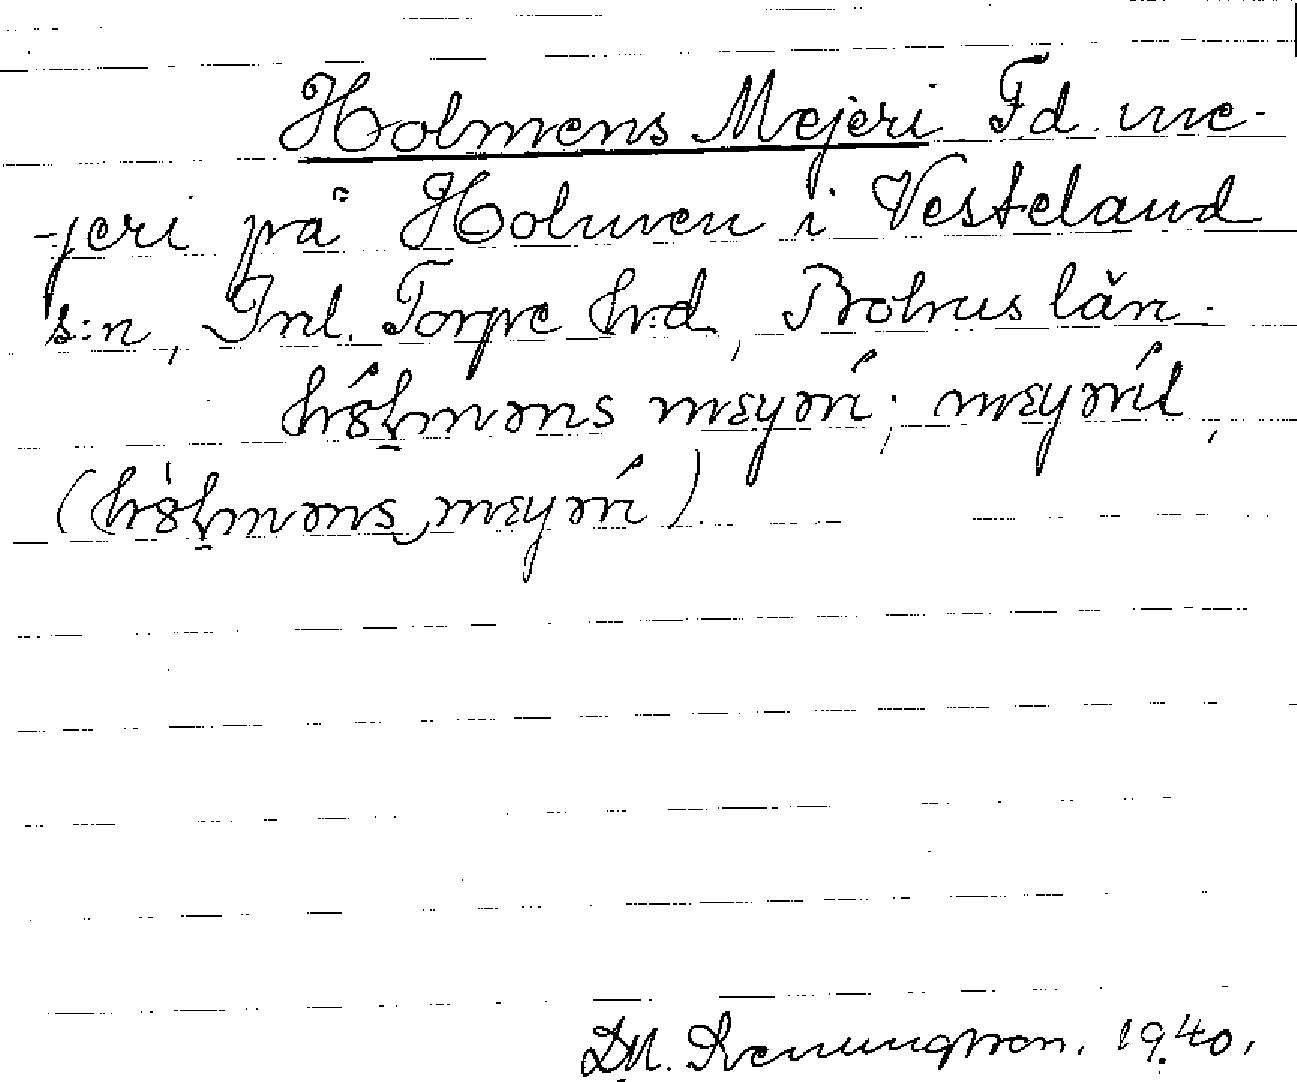 Holmens Mejeri Fd. me-
-jeri på Holmen i Vesteland
s:n, Inl. Torpe hrd, Bohus län.
hó̀lməns mɛyəri; mɛyərit,
(hòlməns mɛyəri)
1940.